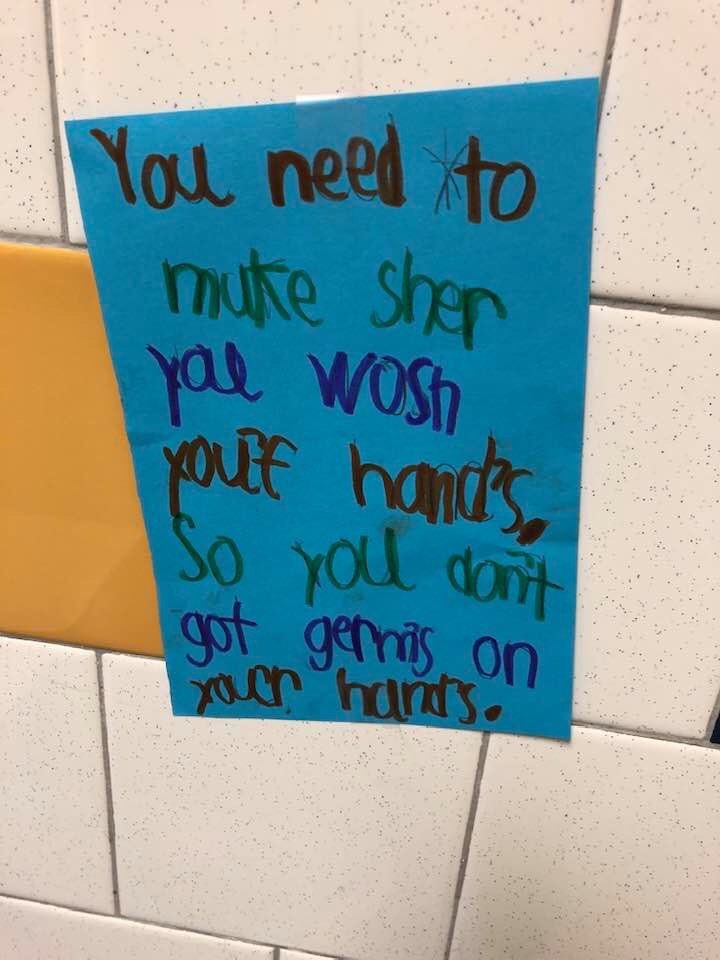 You need to
make sher
you wosh
your hand's,
So you don't
got germs on
your hands.